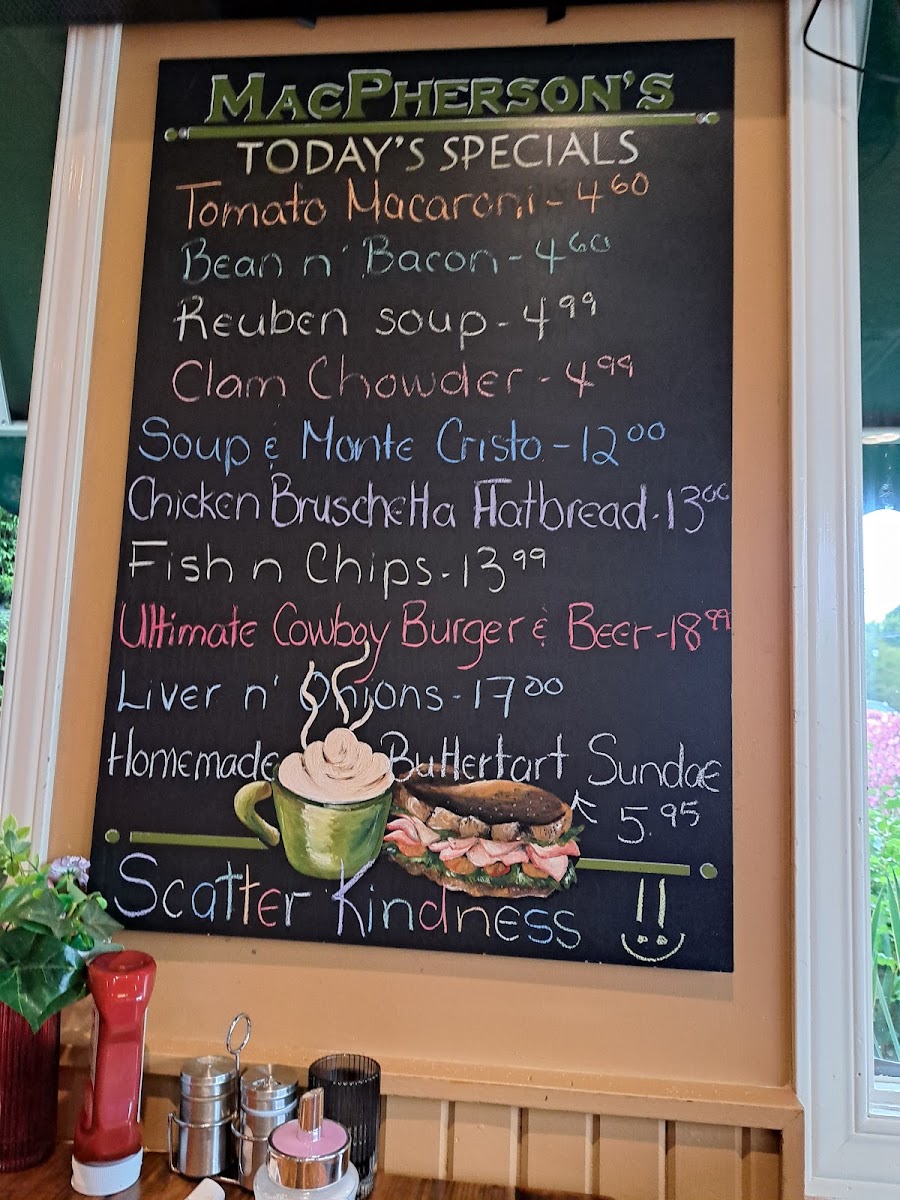 MACPHERSON'S
TODAY'S SPECIALS
Tomato Macaroni - 4 60
Bean n' Bacon - 4 60
Reuben soup - 4 99
Clam Chowder - 4 99
Soup & Monte Cristo - 12 00
Chicken Bruschetta Flatbread - 13 00
Fish n Chips - 13 99
Ultimate Cowboy Burger & Beer - 18 99
Liver n' Onions - 17 00
Homemade Buttertart Sundae
5.95
Scatter Kindness !!